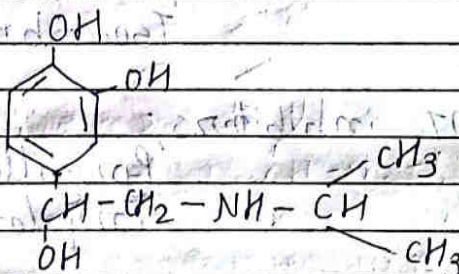 OH
OH
CH3
CH-CH2-NH-CH
OH
CH3